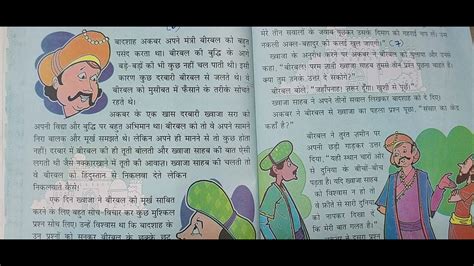 बादशाह अकबर अपने मंत्री बीरबल को बहुत
पसंद करता था। बीरबल की बुद्धि के आगे
बड़े-बड़ों की भी कुछ नहीं चल पाती थी। इसी
कारण कुछ दरबारी बीरबल से जलते थे। वे
बीरबल को मुसीबत में फँसाने के तरीके सोचते
रहते थे।
अकबर के एक खास दरबारी ख्वाजा सरा को
अपनी विद्या और बुद्धि पर बहुत अभिमान था। बीरबल को तो वे अपने सामने
निरा बालक और मूर्ख समझते थे। लेकिन अपने ही मानने से तो कुछ होता
नहीं! दरबार में बीरबल की ही तूती बोलती और ख्वाजा साहब की बात ऐसी
लगती थी जैसे नक्कारखाने में तूती की आवाज़। ख्वाजा साहब की चलती तो
वे बीरबल को हिंदुस्तान से निकलवा देते लेकिन
निकलवाते कैसे!
एक दिन ख्वाजा ने बीरबल को मूर्ख साबित
करने के लिए बहुत सोच-विचार कर कुछ मुश्किल
प्रश्न सोच लिए। उन्हें विश्वास था कि बादशाह के
उन प्रश्नों को सुनकर बीरबल के छक्के छूट
मेरे तीन सवालों के जवाब पूछकर उसके दिमाग की गहराई नाप लें। उस
नकली अक्ल-बहादुर की कलई खुल जाएगी।"
ख्वाजा के अनुरोध करने पर अकबर ने बीरबल को बुलाया और उनसे
कहा, "बीरबल! परम ज्ञानी ख्वाजा साहब तुमसे तीन प्रश्न पूछना चाहते हैं।
क्या तुम उनके उत्तर दे सकोगे?"
बीरबल बोले, "जहाँपनाह! ज़रूर दूँगा। खुशी से पूछें।"
ख्वाजा साहब ने अपने तीनों सवाल लिखकर बादशाह को दे दिए।
अकबर ने बीरबल से ख्वाजा का पहला प्रश्न पूछा, "संसार का केंद्र
कहाँ है?"
बीरबल ने तुरत ज़मीन पर
अपनी छड़ी गाड़कर उत्तर
दिया, "यही स्थान चारों ओर
से दुनिया के बीचों-बीच
पड़ता है। यदि ख्वाजा साहब
को विश्वास न हो तो
वे फ़ीते से सारी दुनिया
को नापकर दिखा दें
कि मेरी बात गलत है।"